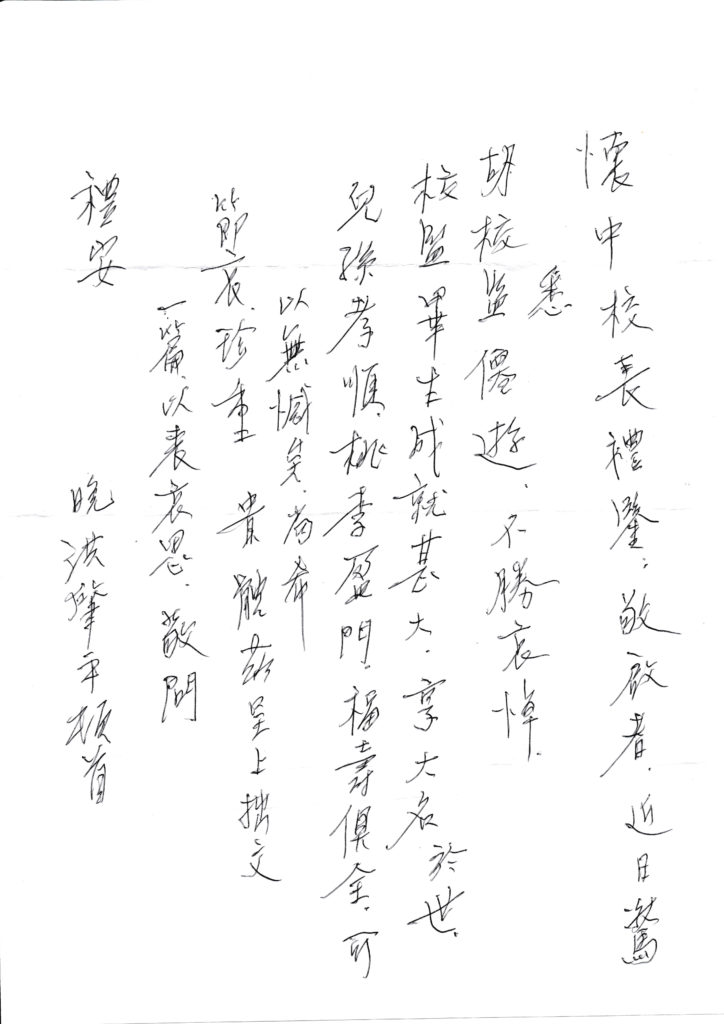 懷中校長禮鑒、敬啟者、近日驚
悉
胡校監僊遊、不勝哀悼、
校監畢生成就甚大、享大名於世、
兒孫孝順、桃李盈門、福壽俱全、可
以無憾矣、尚希
節哀、珍重 貴體茲呈上拙文
一篇、以表哀思、敬問
禮安
晚洪肇平頓首